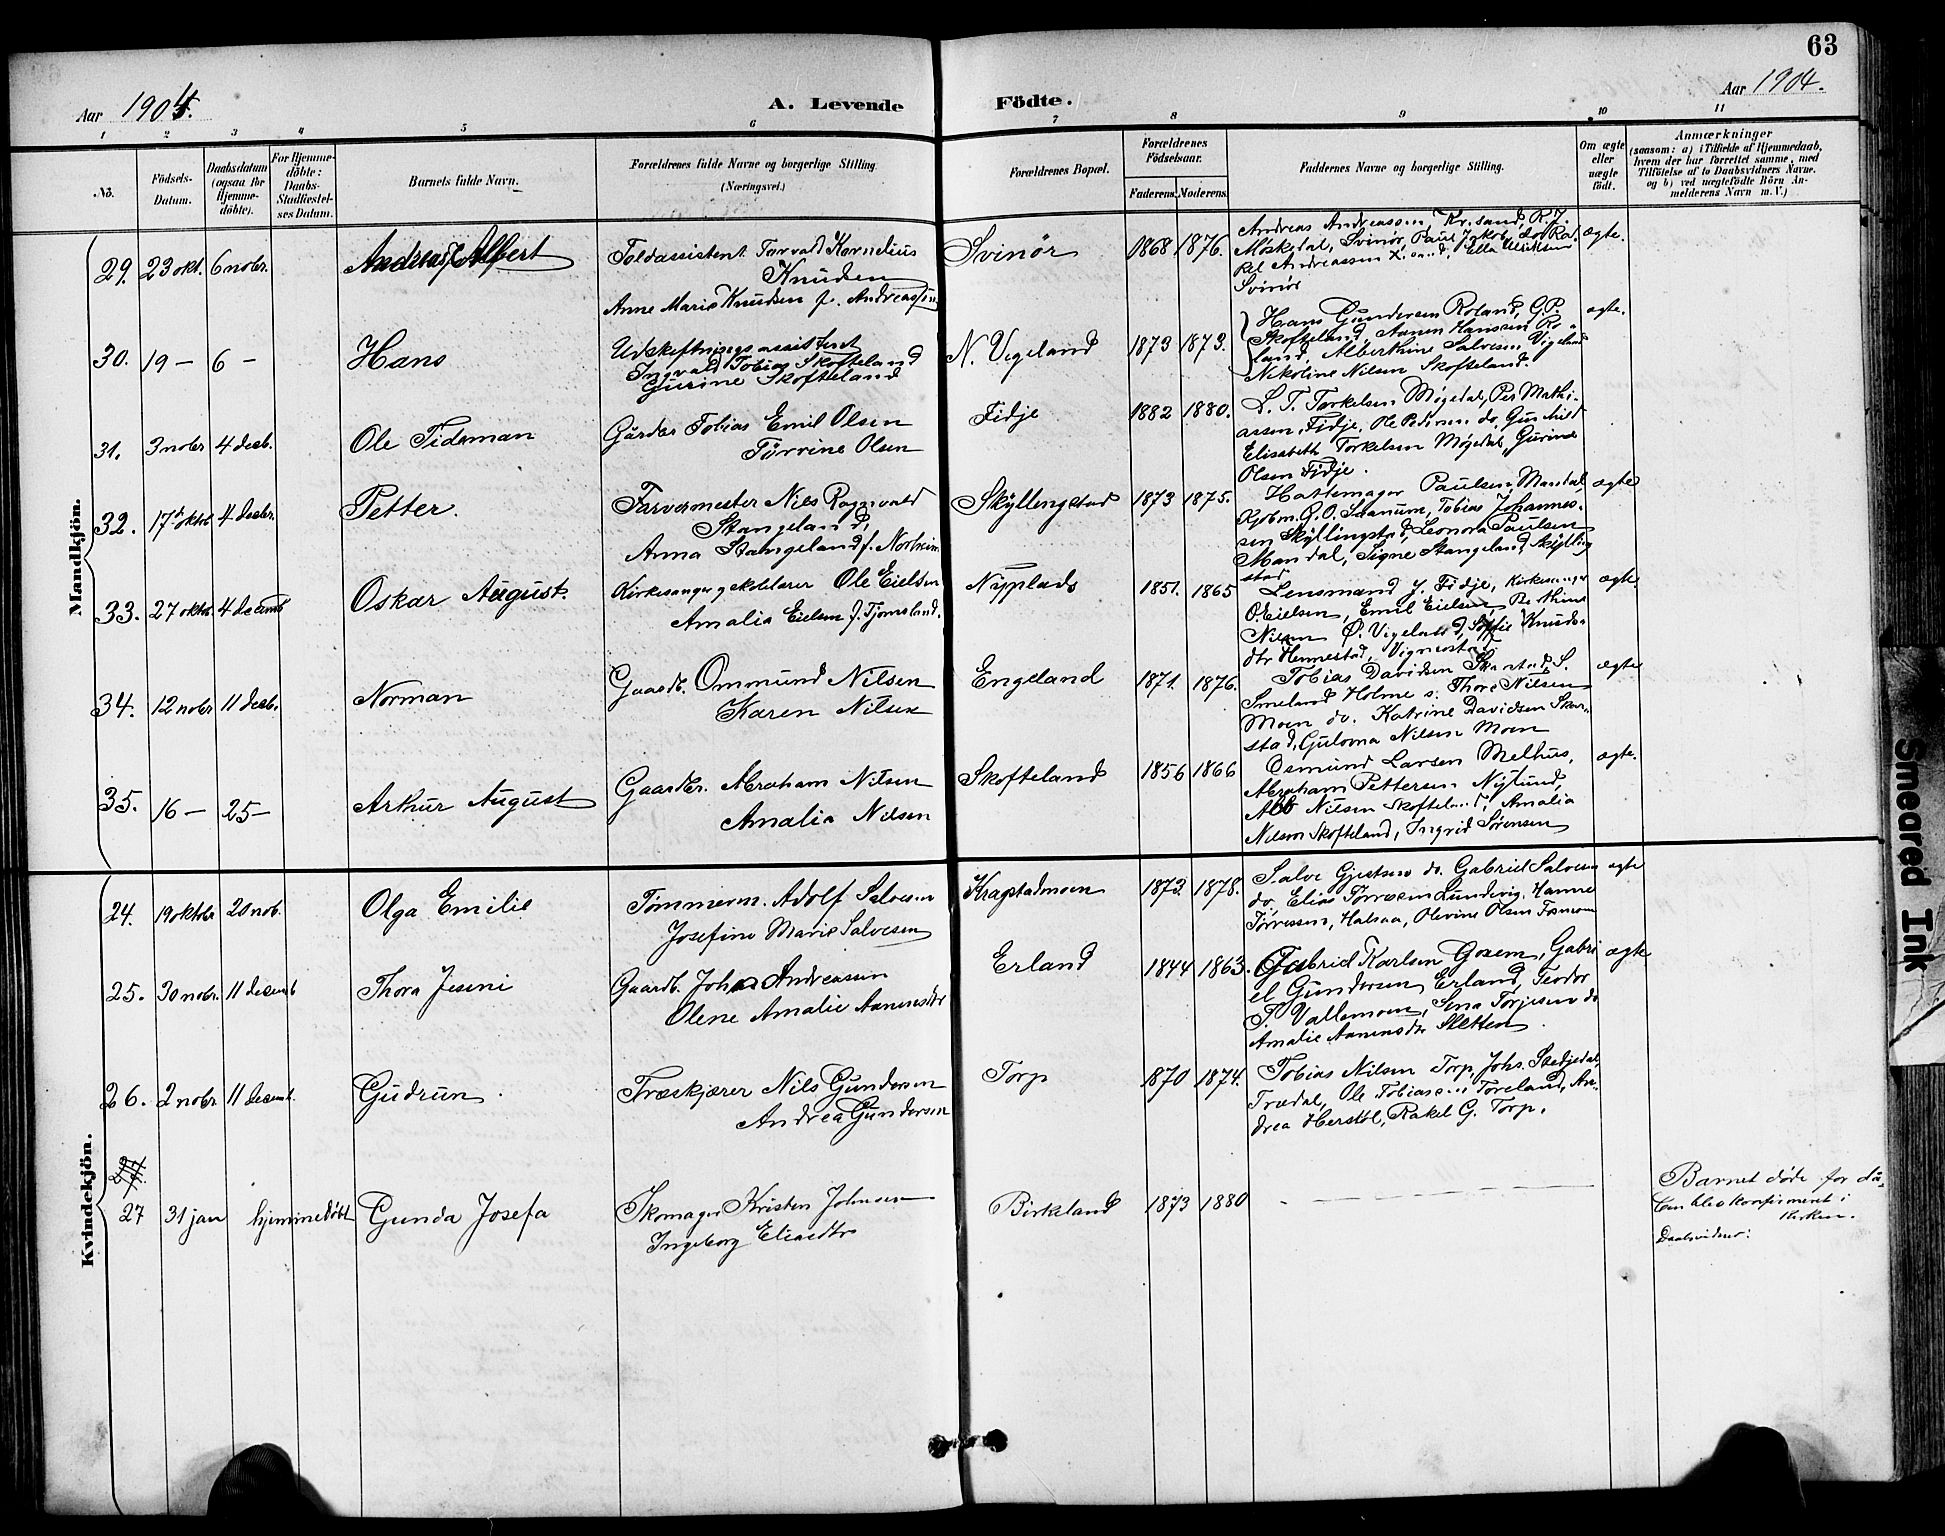 63
Aar 1904.
A. Levende Födte.
Aar 1904.
1 2 3 4 5 6 7 8 9 10 11
No.
Födsels-Datum.
Daabsdatum (ogsaa for Hjemme-döbte).
For Hjemme-döbte: Daabs-Stadfæstel-ses Datum.
Barnets fulde Navn.
Forældrenes fulde Navne og borgerlige Stilling. (Næringsvei.)
Forældrenes Bopæl.
Forældrenes Födselsaar.
Faderens. Moderens.
Faddernes Navne og borgerlige Stilling.
Om ægte eller uægte födt.
Anmærkninger
(saasom: a) i Tilfælde af Hjemmedaab,
hvem der har forrettet samme, med
Tilföielse af to Daabsvidners Navne.
og b) ved uægtefödte Börn An-
melderens Navn m. V.)
Mandkjön.
29. 23 okt. 6 nobr. Andreas Albert
Toldassistent Torvald Kornelius
Knudsen
Anne Marie Knudsen f. Andreassen
Svinør 1868 1876.
Andreas Andreassen Kr.sand, R. J.
Møskedal, Svinør, Paul Jakob do Ra-
kel Andreassen X.sand, Ella Ulriksen
Svinør
ægte.
30. 19 — 6 — Hans
Udskiftningsassistent
Ingvald Tobias Skofteland
Gurine Skofteland
N. Vigeland 1873 1873.
Hans Gundersen Roland, G. P.
Skofteland, Aanen Hanssen Ro-
land, Alberthine Salvesen Vigeland
Nikoline Nilsen Skofteland.
ægte.
31. 3 nobr 4 decb. Ole Tideman
Gårdbr Tobias Emil Olsen
Tørrine Olsen
Fidje 1882 1880.
L. T. Torkelsen Møgedal, Per Mathi-
assen, Fidje, Ole Pedersen do, Gunhild
Elisabeth Torkelsen Møgedal, Gurine
Olsen Fidje.
32. 17de oktb 4 decbr. Petter.
Farvermester Nils Rognvald
Stangeland,
Anna Stangeland f. Norheim
Skyllingstad 1873 1875.
Hattemager Paulsen Mandal,
Kjøbm. G. O. Saanum, Tobias Johannes-
sen Skyllingstad, Leonora Paulsen
Mandal, Signe Stangeland Skylling
stad
ægte
33. 27 oktbr 4 decemb Oskar August.
Kirkesanger og skolelærer Ole Eielsen
Amalia Eielsen f. Tjomsland.
Nyplads 1851. 1865
Lensmand J. Fidje, Kirkesanger
O. Eielsen, Emil Eielsen, Berthine
Nilsen Ø. Vigeland, Sofie Knuds-
dtr Hennestad, Vigmostad
ægte
34. 12 nobr 11 decb. Norman
Gaardb. Ommund Nilsen
Karen Nilsen
Engeland 1871. 1876.
Tobias Davidsen Skarstad, S.
Smeland Holme s. Thore Nilsen
Moen do. Katrine Davidsen Skar-
stad, Gulovna Nilsen Moen
ægte
35. 16 — 25 — Arthur August
Gaardbr. Abraham Nilsen
Amalia Nilsen
Skofteland 1856 1866
Osmund Larsen Melhus,
Abraham Pettersen Nylund,
Alb Nilsen Skofteland, Amalia
Nilsen Skofteland, Ingrid Sørensen
ægte.
Kvindekjön.
24. 19 oktbr 20 nob. Olga Emilie
Tømmerm. Adolf Salvesen
Josefine Marie Salvesen
Kragstadmoen 1873 1878.
Salve Gjertsen do. Gabriel Salvesen
do, Elias Tørresen Lundevig, Hanne
Tørressen, Halsaa, Olevine Olsen
ægte
25. 30 nobr. 11 decemb Thora Jesini
Gaardb. Johan Andreassen
Olene Amalie Aanensdtr
Erland 1844 1863.
Gabriel Karlsen Gosem, Gabri
el Gundersen Erland, Teodor
P. Vallemoen, Sena Torjesen do
Amalie Aanensdtr Sletten.
ægte
26. 2 nobr 11 decemb. Gudrun.
Træskjærer Nils Gundersen
Andrea Gundersen
Torp 1870 1874.
Tobias Nilsen Torp, Johs. Stedjedal,
Trædal, Ole Tobiasen Foreland, An-
drea Herstøl, Rakel G. Torp.
27.
27 31 jan hjemmedøbt Gunda Josefa
Skomager Kristen Johnsen
Ingeborg Eliasdtr
Birkeland 1873 1880
Barnet døde før då-
ben blev konfirmeret i
kirken.
Daabsvidner:
Smeared Ink